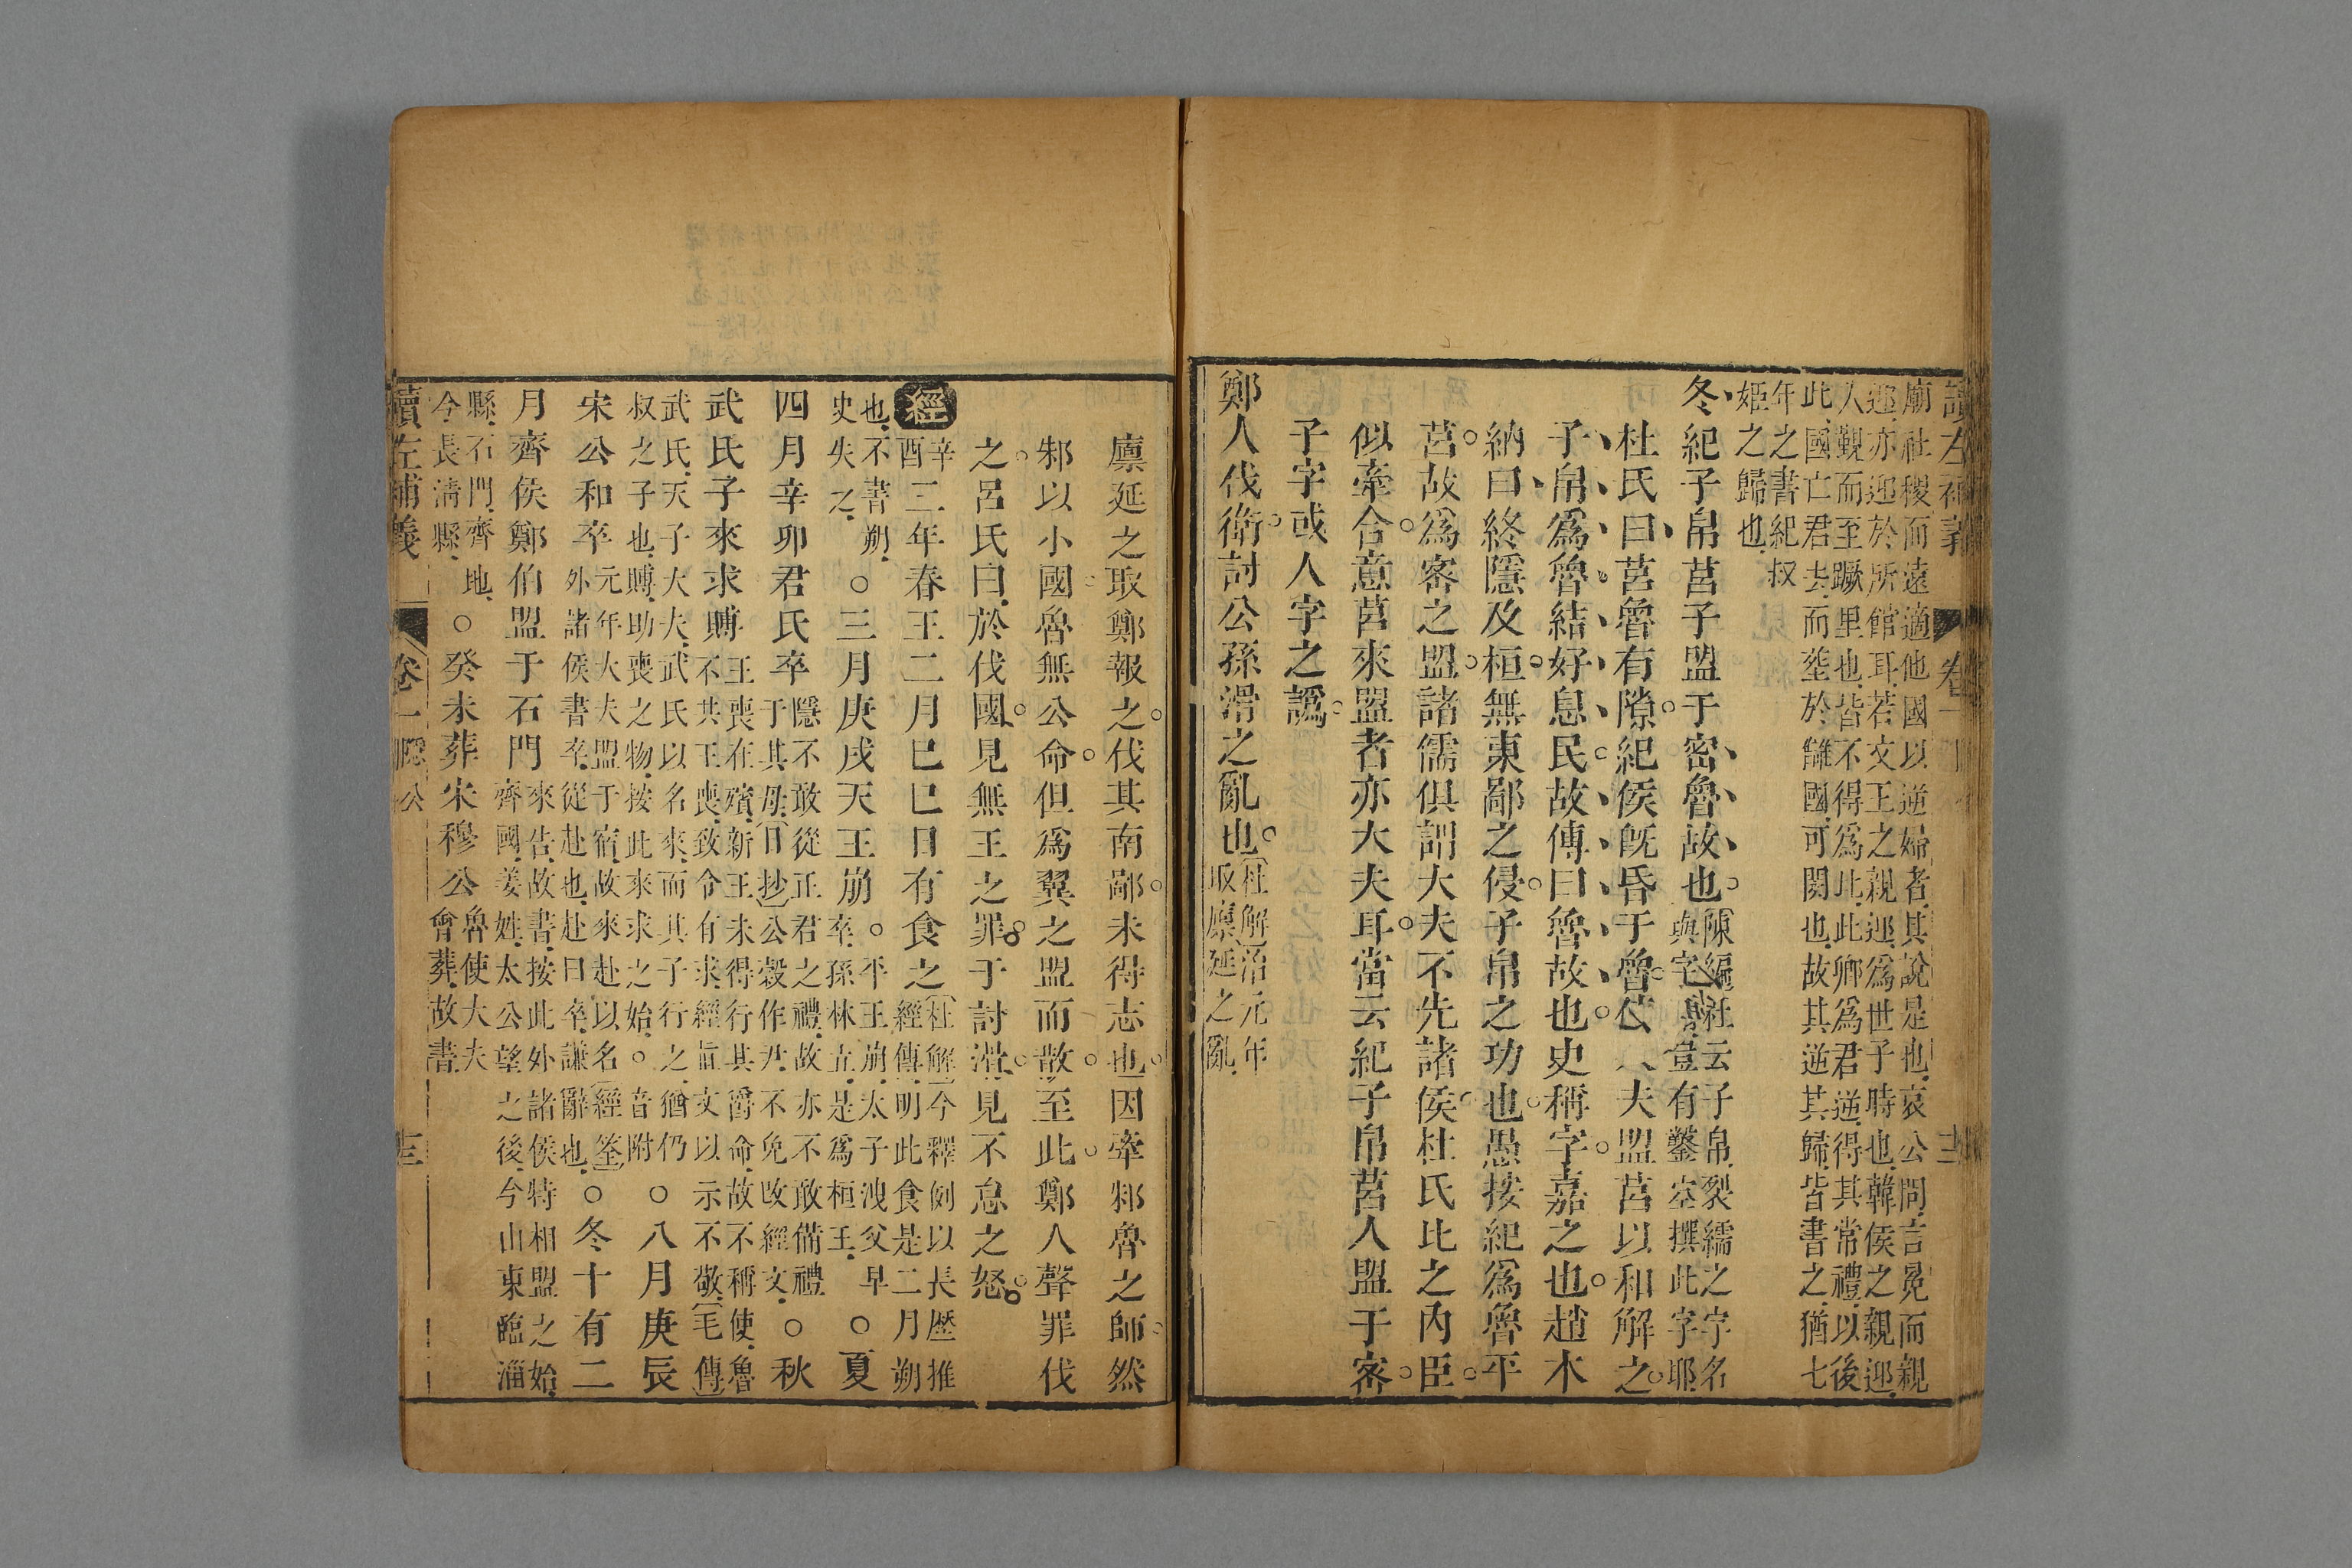 讀左補義 卷一
廟社稷而遠適他國以逆婦者其說是也哀公問言冕而親
迎亦迎於所館耳若文王之親迎爲世子時也韓侯之親迎
人覲而至蹶里也皆不得爲此此卿爲君逆得其常禮以後
此國亡君去而塟於讎國可閔也故其逆其歸皆書之猶七
年之書紀叔
姬之歸也
冬紀子帛莒子盟于密魯故也
陳編杜云子帛裂繻之字名
與字豈有鑿空撰此字耶
杜氏曰莒魯有隙紀侯旣昏于魯使大夫盟莒以和解之
子帛爲魯結好息民故傳曰魯故也史稱字嘉之也趙木
納曰終隱及桓無東鄙之侵子帛之功也愚按紀爲魯平
莒故爲密之盟諸儒俱謂大夫不先諸侯杜氏比之內臣
似牽合意莒來盟者亦大夫耳當云紀子帛莒人盟于密
子字或人字之譌
鄭人伐衛討公孫滑之亂也
杜解治元年
取廩延之亂
廩延之取鄭報之伐其南鄙未得志也因牽邾魯之師然
邾以小國魯無公命但爲翼之盟而散至此鄭人聲罪伐
之呂氏曰於伐國見無王之罪于討滑見不怠之怒
經
辛
酉
三年春王二月己巳日有食之
杜解今釋例以長歷推
經傳明此食是二月朔
也不書朔
史失之
○三月庚戌天王崩
平王崩太子洩父早
卒孫林立是爲桓王
○夏
四月辛卯君氏卒
隱不敢從正君之禮故亦不敢備禮
于其母日抄公穀作尹不免改經文
○秋
武氏子來求賻
王喪在殯新王未得行其爵命故不稱使魯
不共王喪致令有求經直文以示不敬毛傳
武氏天子大夫武氏以名來而其子行之猶仍
叔之子也賻助喪之物按此來求之始○音附
○八月庚辰
宋公和卒
元年大夫盟于宿故來赴以名經筌
外諸侯書卒從赴也赴曰卒謙辭也
○冬十有二
月齊侯鄭伯盟于石門
來告故書按此外諸侯特相盟之始
齊國姜姓太公望之後今山東臨淄
縣石門齊地
今長淸縣
○癸未葬宋穆公
魯使大夫
會葬故書
讀左補義 卷一 隱公 十三